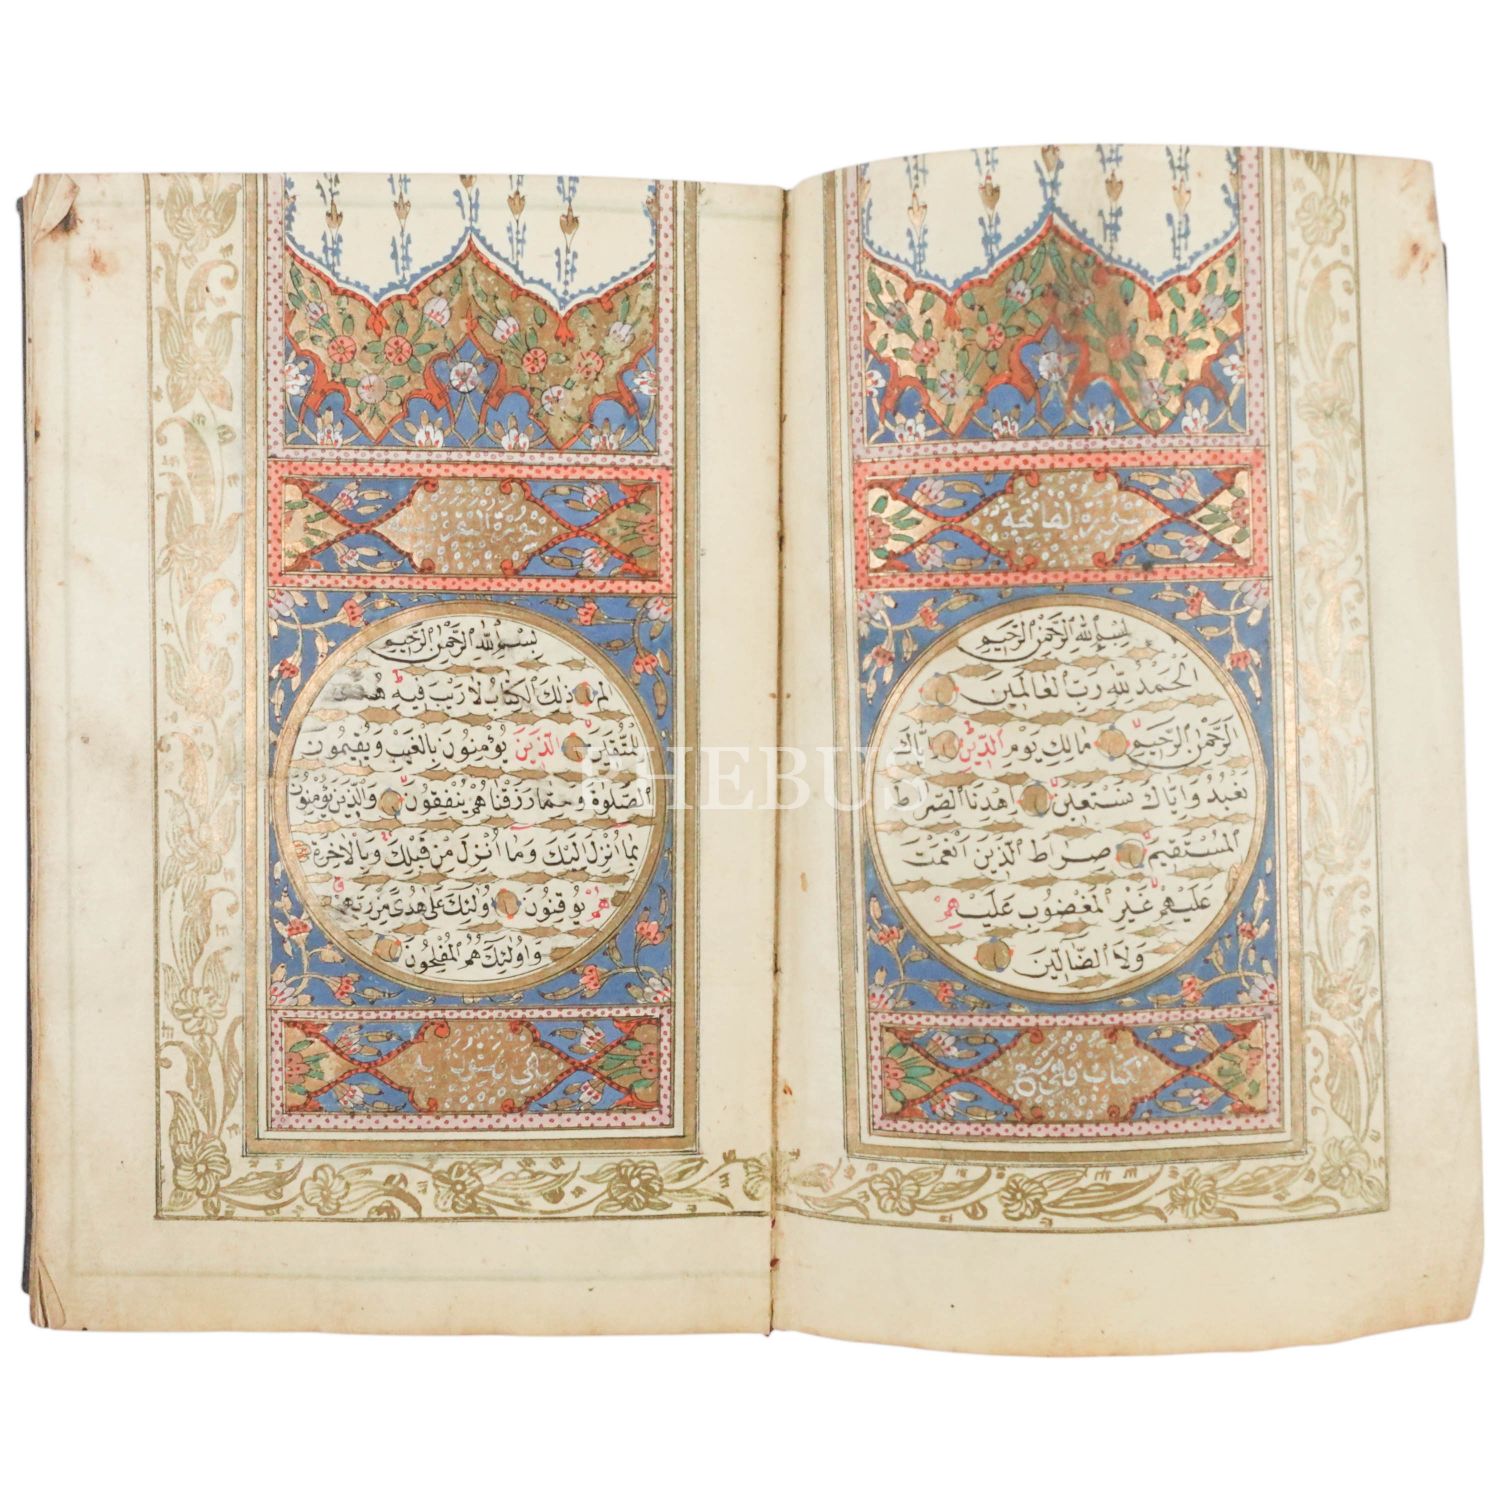 سورة الفاتحة
بسم الله الرحمن الرحيم
الحمد لله رب العالمين
الرحمن الرحيم مالك يوم الدين اياك
نعبد واياك نستعين اهدنا الصراط
المستقيم صراط الذين انعمت
عليهم غير المغضوب عليهم
ولا الضالين
سورة البقرة
بسم الله الرحمن الرحيم
الم ذلك الكتاب لا ريب فيه هدى
للمتقين الذين يؤمنون بالغيب ويقيمون
الصلوة ومما رزقناهم ينفقون والذين يؤمنون
بما انزل اليك وما انزل من قبلك وبالاخرة
هم يوقنون اولئك على هدى من ربهم
واولئك هم المفلحون
PHEBUS